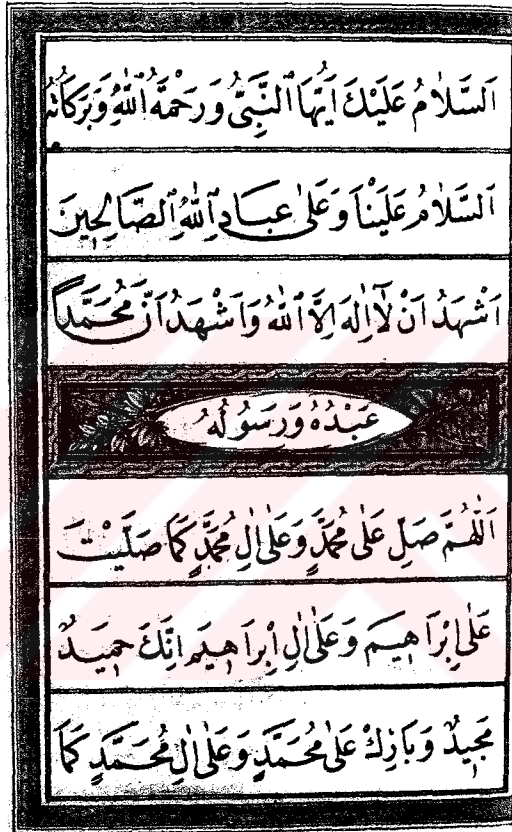 اَلسَّلَامُ عَلَيْكَ اَيُّهَا ٱلنَّبِيُّ وَرَحْمَةُ ٱللّٰهِ وَبَرَكَاتُهُ
اَلسَّلَامُ عَلَيْنَا وَعَلٰى عِبَادِ ٱللّٰهِ ٱلصَّالِحِينَ
اَشْهَدُ اَنْ لَٓا اِلٰهَ اِلَّا ٱللّٰهُ وَاَشْهَدُ اَنَّ مُحَمَّدًا
عَبْدُهُ وَرَسُولُهُ
اَللّٰهُمَّ صَلِّ عَلٰى مُحَمَّدٍ وَعَلٰى اٰلِ مُحَمَّدٍ كَمَا صَلَّيْتَ
عَلٰى اِبْرَاهِيمَ وَعَلٰى اٰلِ اِبْرَاهِيمَ اِنَّكَ حَمِيدٌ
مَجِيدٌ وَبَارِكْ عَلٰى مُحَمَّدٍ وَعَلٰى اٰلِ مُحَمَّدٍ كَمَا